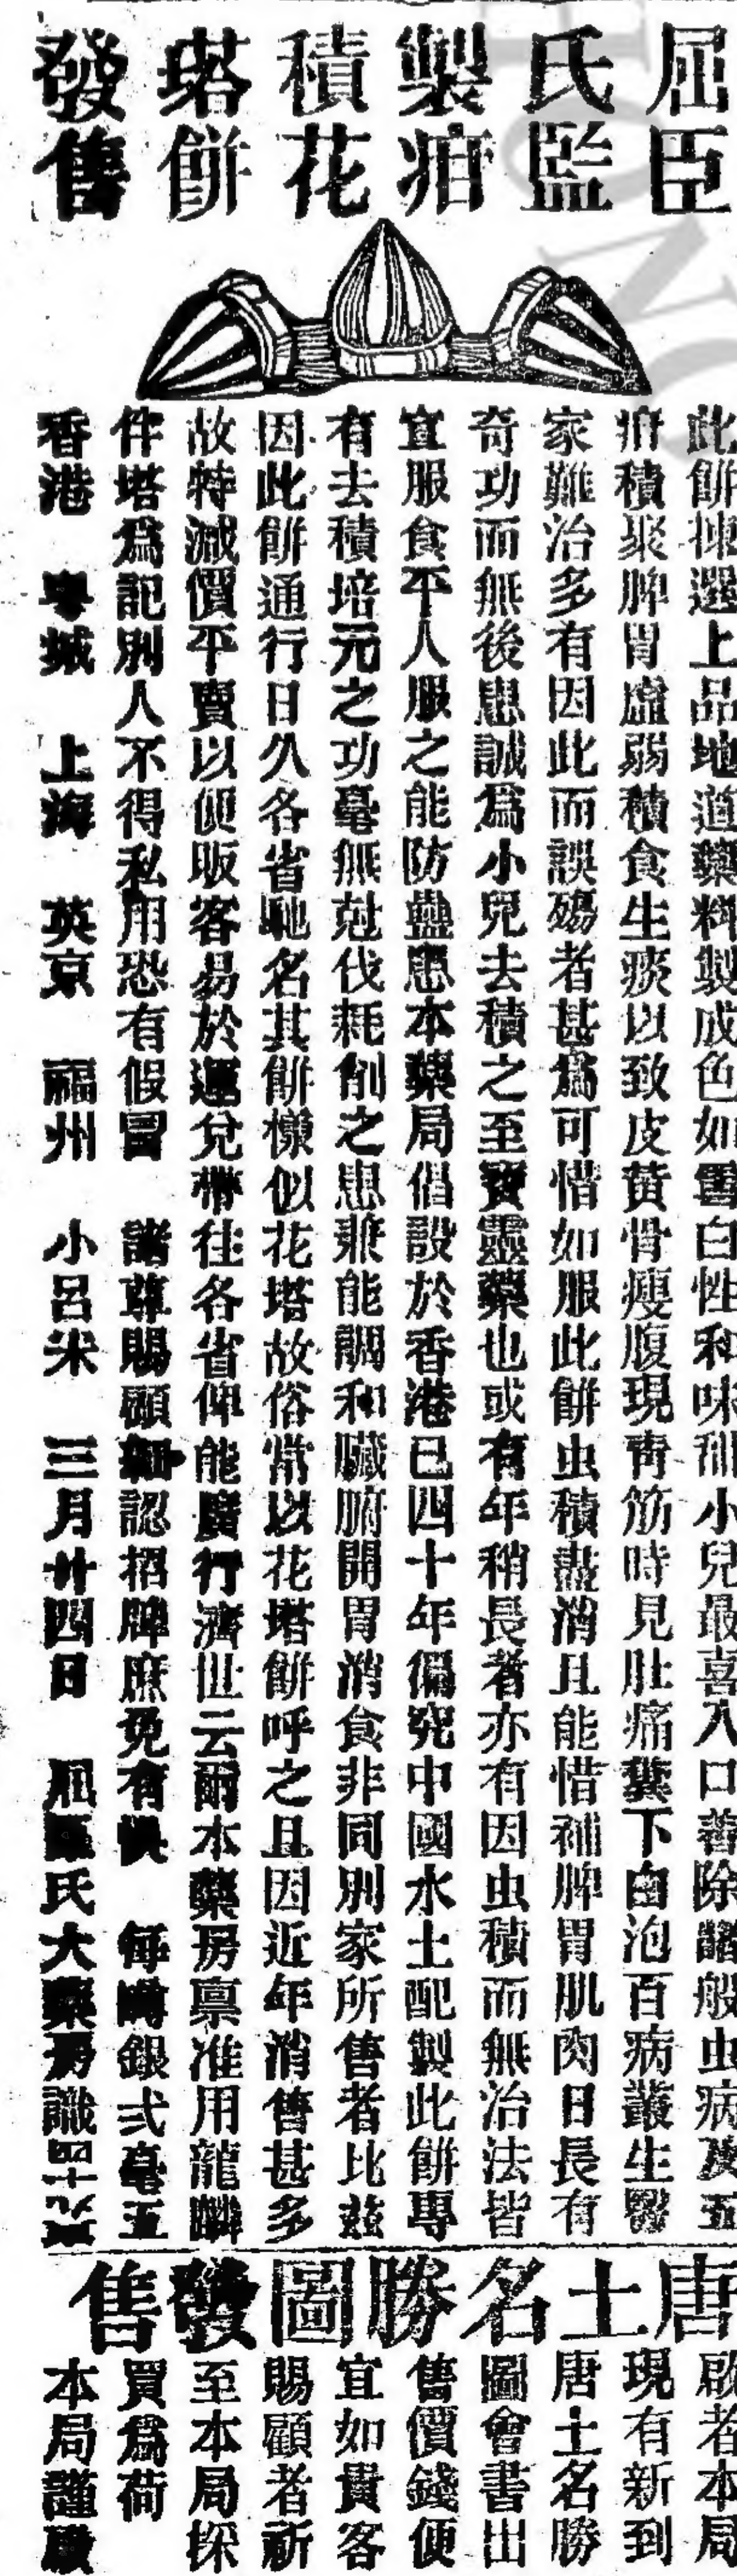 屈臣
氏監
製疳
積花
塔餅
發售
此餅揀選上品地道藥料製成色如雪白性和味甜小兒最喜入口善除諸般虫病及五
疳積聚脾胃虛弱積食生痰以致皮黄骨瘦腹現青筋時見肚痛糞下白泡百病叢生醫
家難治多有因此而誤殤者甚爲可惜如服此餅虫積盡消且能借補脾胃肌肉日長有
奇功而無後患誠爲小兒去積之至寳靈藥也或有年稍長者亦有因虫積而無治法皆
宜服食平人服之能防蠱患本藥局倡設於香港已四十年徧究中國水土配製此餅專
有去積培元之功毫無尅伐耗削之患兼能調和臟腑開胃消食非同別家所售者比玆
因此餅通行日久各省馳名其餅樣似花塔故俗常以花塔餅呼之且因近年消售甚多
故特減價平賣以便販客易於運兌帶往各省俾能廣行濟世云爾本藥房禀准用龍麟
件塔爲記別人不得私用恐有假冒 諸尊賜顧細認招牌庶免有悞 每罇銀弍毫五
香港 粤城 上海 英京 福州 小呂宋 三月廿四日 屈臣氏大藥房識
唐土名勝圖發售
啟者本局
現有新到
唐土名勝
圖會書出
售價錢便
宜如貴客
賜顧者祈
至本局採
買爲荷
本局謹啟